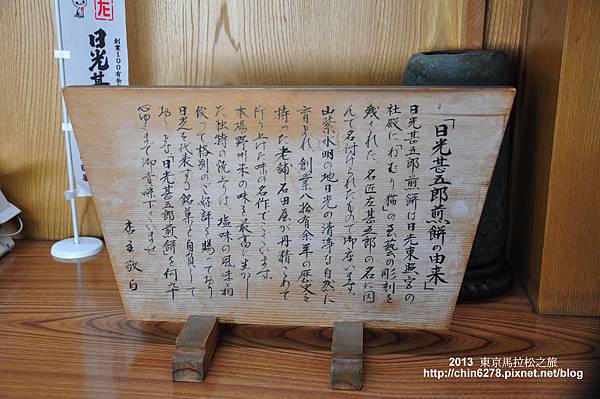 「日光甚五郎煎餅の由来」
日光甚五郎煎餅は日光東照宮の
社殿に「ねむり猫」の至藝の彫刻を
残された、名匠左甚五郎の名に因
んで名付けられたもので御座います。
山紫水明の地日光の清浄な自然に
育まれ、創業八拾有余年の歴史を
持った老舗石田屋が丹精こめて
作り上げた味の名作でございます。
本場野州米の味を最高に生かし
た独特の焼上りは、塩味の風味と相
俟って格別のご好評を賜っており
日光を代表する銘菓と自負して
おります「日光甚五郎煎餅」を何卒
心ゆくまで御賞味下さいませ
店主敬白
創業100有余
日光甚
2013 東京馬拉松之旅
http://chin6278.pixnet.net/blog